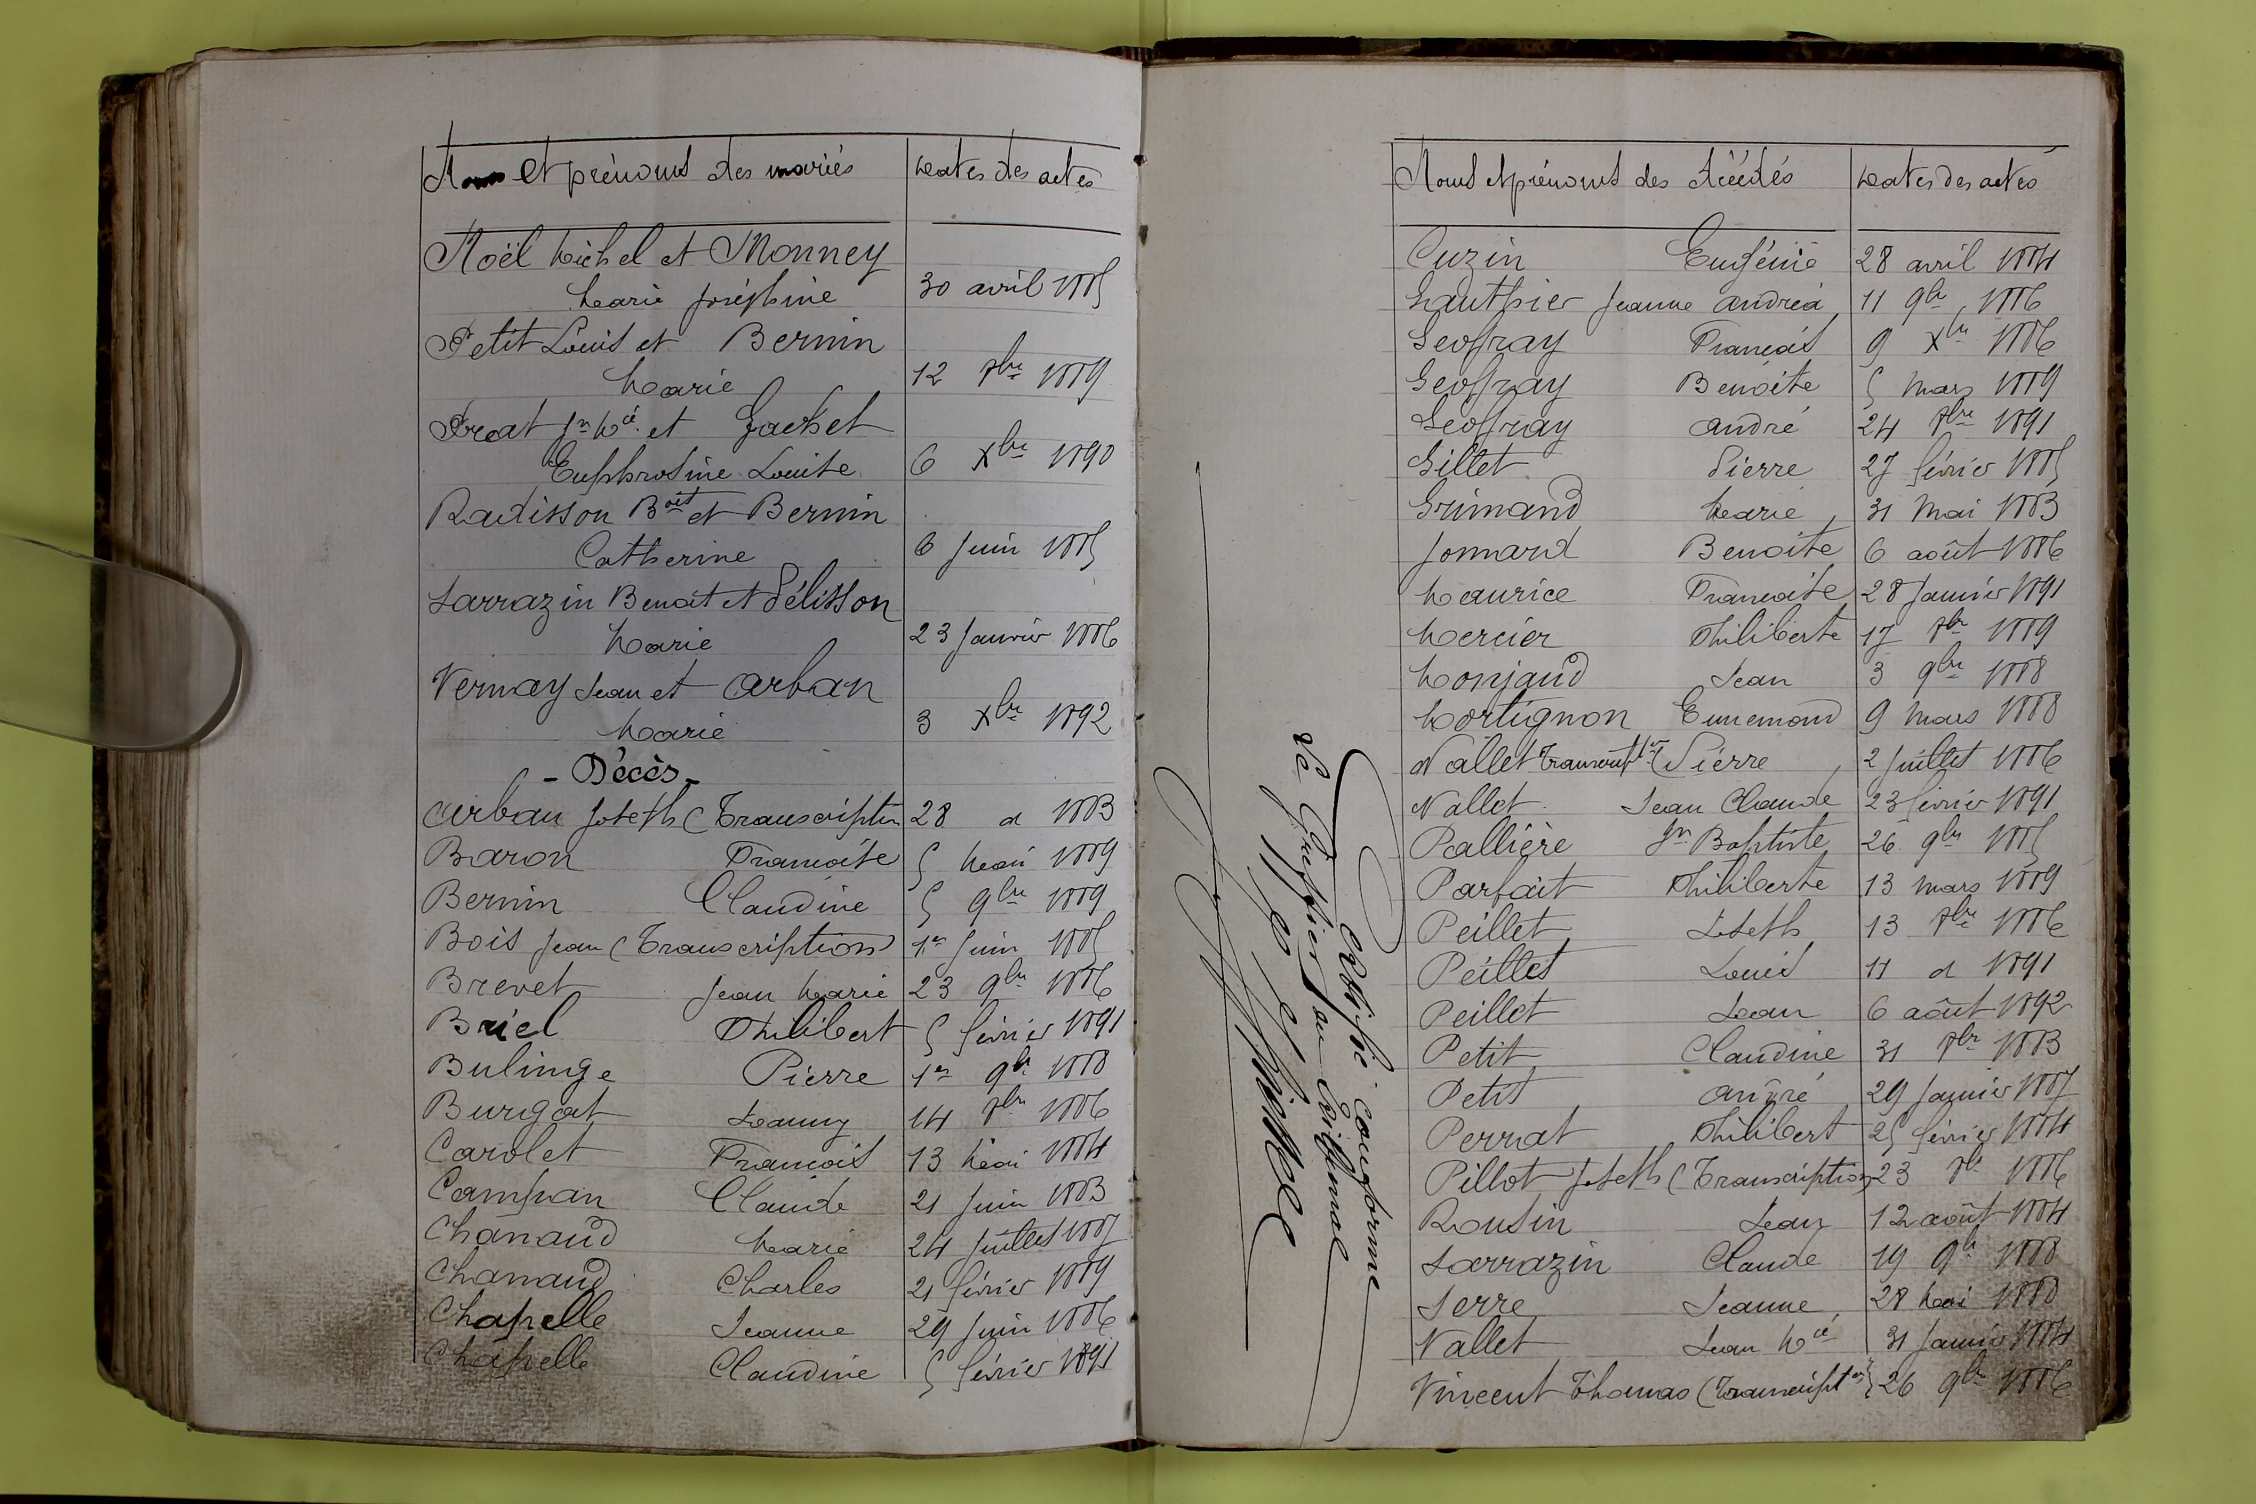 Noms et prénoms des mariés Dates des actes
Noël Michel et Monney
Marie Joséphine 30 avril 1885
Petit Louis et Bernin
Marie 12 8bre 1889
Preat Jn Mcé et Gachet
Euphrosine Louise 6 Xbre 1890
Radisson Boit et Bernin
Catherine 6 Juin 1885
Sarrazin Benoit et Pélisson
Marie 23 Janvier 1886
Vernay Jean et Arban
Marie 3 Xbre 1892
- Décès -
Arban Joseph (Transcription 28 d 1883
Baron Françoise 5 Mai 1889
Bernin Claudine 5 9bre 1889
Bois Jean (Transcription) 1er Juin 1885
Brevet Jean Marie 23 9bre 1886
Briel Philibert 5 février 1891
Bulinge Pierre 1er 9bre 1888
Burgat Jeanny 14 8bre 1886
Carolet François 13 Mai 1884
Campan Claude 21 Juin 1883
Chanaud Marie 24 Juillet 1887
Chanaud Charles 21 février 1889
Chapelle Jeanne 29 Juin 1886
Chapelle Claudine 5 février 1891
Noms et prénoms des décédés Dates des actes
Cuzin Eugénie 28 avril 1884
Gauthier Jeanne Andréa 11 9bre 1886
Geoffray François 9 Xbre 1886
Geoffray Benoite 5 Mars 1889
Geoffray André 24 8bre 1891
Gillet Pierre 27 février 1885
Grimand Marie 31 Mai 1883
Jonnard Benoite 6 août 1886
Maurice Françoise 28 Janvier 1891
Mercier Philiberte 17 8bre 1889
Monjaud Jean 3 9bre 1888
Mortignon Ennemond 9 Mars 1888
Nallet Transcription (Pierre 2 Juillet 1886
Nallet Jean Claude 23 février 1891
Pallière Jn Baptiste 26 9bre 1885
Parfait Philiberte 13 mars 1889
Peillet Joseph 13 8bre 1886
Peillet Louis 11 d 1891
Peillet Jean 6 août 1892
Petit Claudine 31 8bre 1883
Petit André 29 Janvier 1887
Perrat Philibert 25 février 1884
Pillot Joseph (Transcription) 23 8bre 1886
Rousin Jean 12 août 1884
Sarrazin Claude 19 9bre 1888
Serre Jeanne 28 Mai 1888
Vallet Jean Mcé 31 Janvier 1884
Vincent Thomas (Transcripton) 26 9bre 1886
Certifié conforme
Le Greffier au Original